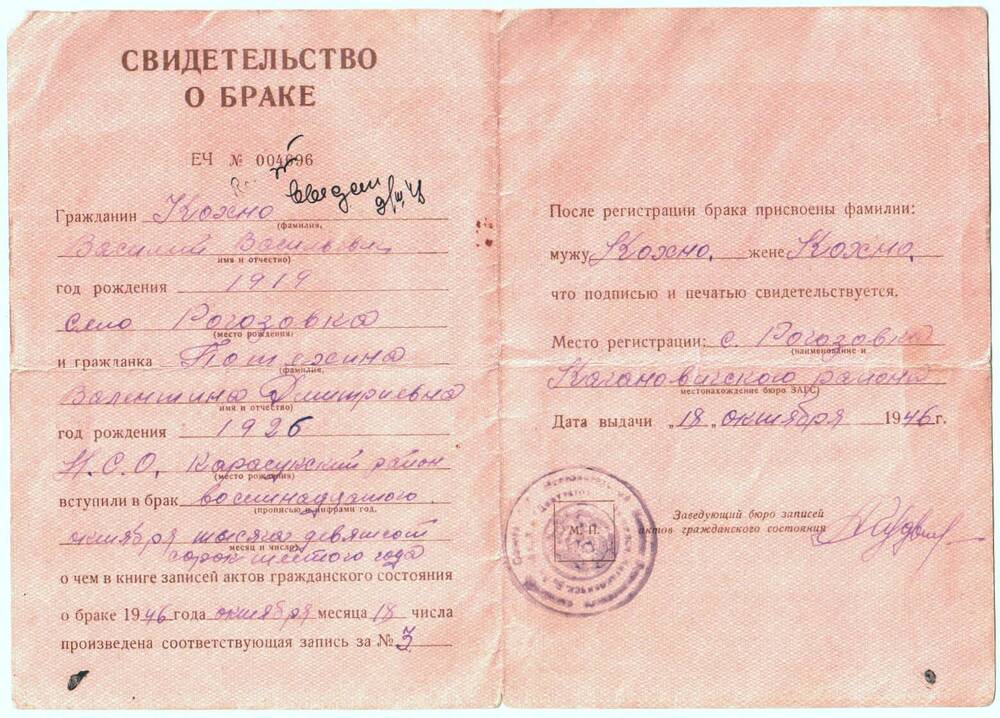 СВИДЕТЕЛЬСТВО
О БРАКЕ
ЕЧ № 004096
Гражданин Кохно
(фамилия,
Василий Васильевич
имя и отчество)
год рождения 1919
село Рогозовка
(место рождения)
и гражданка Потехина
(фамилия,
Валентина Дмитриевна
имя и отчество)
год рождения 1926
Н.С.О. Карасукский район
(место рождения)
вступили в брак восемнадцатого
(прописью и цифрами год,
октября тысяча девятсот
месяц и число)
сорок шестого года
о чем в книге записей актов гражданского состояния
о браке 1946 года октября месяца 18 числа
произведена соответствующая запись за № 3
После регистрации брака присвоены фамилии:
мужу Кохно, жене Кохно,
что подписью и печатью свидетельствуется.
Место регистрации: с. Рогозовка
(наименование и
Кагановичского района
местонахождение бюро ЗАГС)
Дата выдачи „18„ октября 1946 г.
М. П.
Заведующий бюро записей
актов гражданского состояния